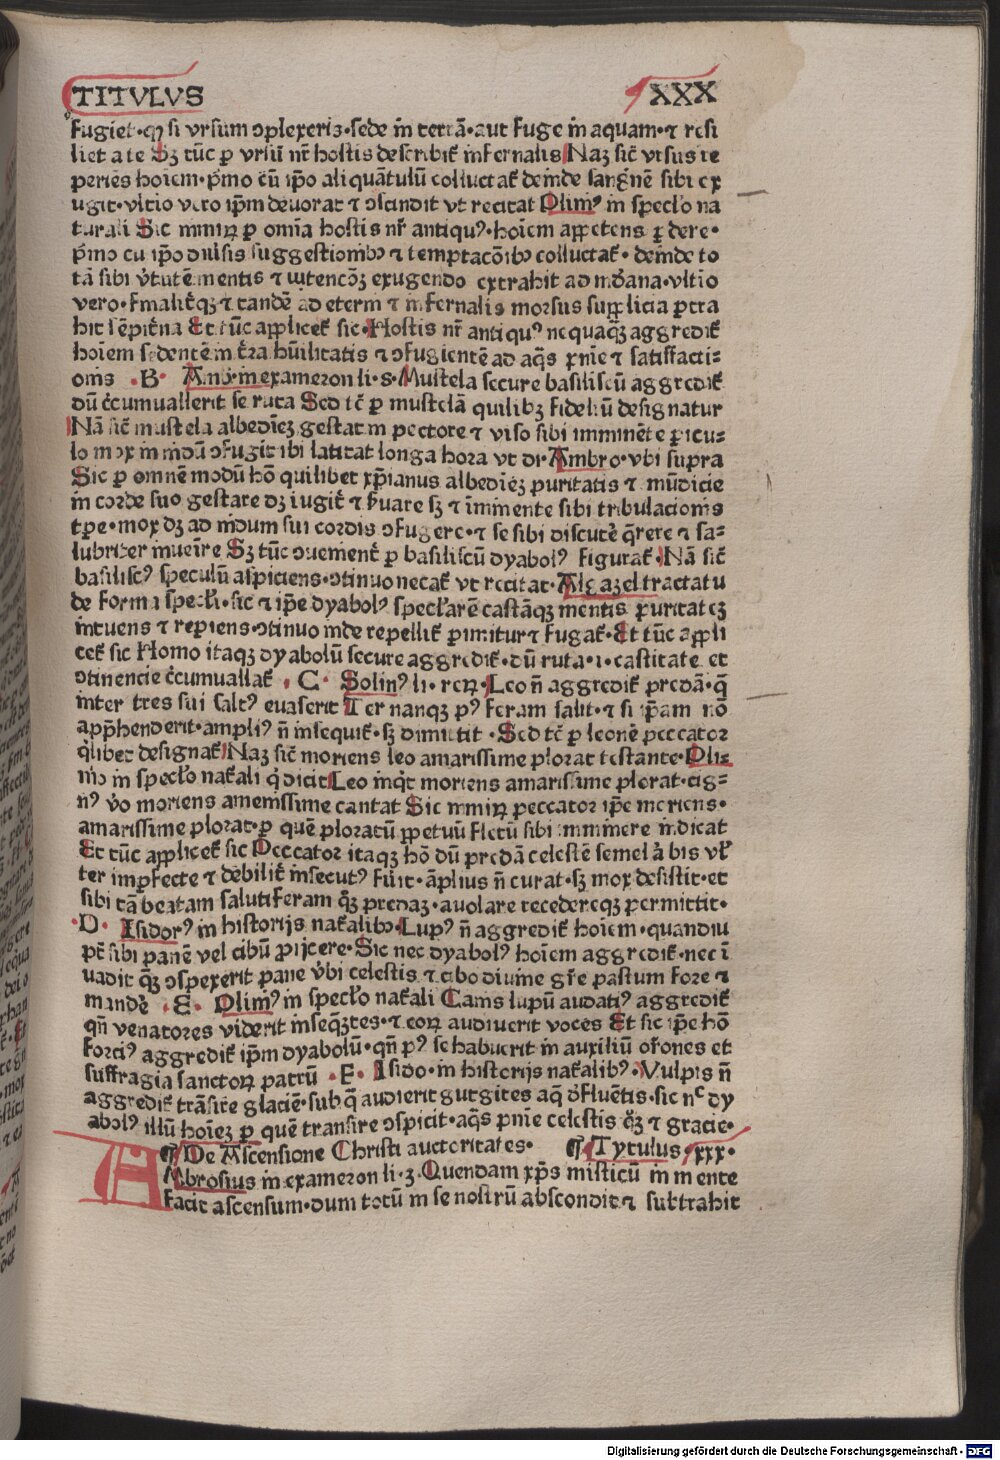 TITVLVS XXX
fugiet· qꝫ si vrsum ↄplexeris·sede in terrā·aut fuge in aquam·⁊ resi
liet a te Sꝫ tūc ꝑ vrsū nr̄ hostis describit᷑ infernalis Naꝫ sic̄ vrsus re
periēs hoīem·pͥmo cū ip̄o aliquātulū colluctat᷑ deinde sangͥnē sibi ex
ugit·vltīo vero ip̄m deuorat ⁊ ↄscindit vt recitat Plini⁹ in specło na
turali Sic nimiꝝ ꝑ om̄ia hostis nr̄ antiqu⁹·hoīem appetens ꝑdere·
pͥmo cū ip̄o diuīsis suggestionibꝫ ⁊ temptacōibꝫ colluctat᷑· deinde to
tā sibi v̄tutē mentis ⁊ intencōꝫ exugendo extrahit ad mūdana·vltīo
vero·finalit̄qꝫ ⁊ tandē ad eterni ⁊ infernalis morsus supplicia ptra
hit sēpit̄na Et tūc applicet᷑ sic·Hostis nr̄ antiqu⁹ nequaqꝫ aggredit᷑
hoīem sedentē in t̄ra hūilitatis ⁊ ↄfugientē ad aqͣs pn̄ie ⁊ satisfacti⸗
onis ·B· Ambro·in exameron li·5·Mustela secure basiliscū aggredit᷑
dū cͥcumuallerit se ruta Sed tc̄ ꝑ mustelā quilibꝫ fideliū designatur
Nā sic̄ mustela albedīeꝫ gestat in pectore ⁊ viso sibi imminēte pͥicu⸗
lo mox in nidū ↄfugit ibi latitat longa hora vt di·Ambro·vbi supra
Sic ꝑ omnē modū hō quilibet xp̄ianus albedīeꝫ puritatis ⁊ mūdicie
in corde suo gestare dꝫ iugit̄ ⁊ ẜuare sꝫ ⁊ īminente sibi tribulacionis
tꝑe·mox dꝫ ad nidum sui cordis ↄfugere·⁊ se sibi discutē qͣrere ⁊ sa⸗
lubriter inueīre Sꝫ tūc ↄuenient̄ ꝑ basiliscū dyabol⁹ figurat᷑·Nā sic̄
basilisc⁹ speculū aspiciens·ↄtinuo necat᷑ vt recitat·Algazel tractatu
de forma specłi·sic ⁊ ip̄e dyabol⁹ specłarē castāqꝫ mentis puritateꝫ
intuens ⁊ repiens·ↄtinuo inde repellit᷑ pͥmitur ⁊ fugat᷑·Et tūc appli
cet᷑ sic Homo itaqꝫ dyabolū secure aggredit᷑·dū ruta·i·castitate et
ↄtinencie cͥcumuallat᷑ ·C· Solin⁹ li·reꝝ·Leo n̄ aggredit᷑ predā·qͣ
inter tres sui salt⁹ euaserit Ter nanqꝫ p⁹ feram salit·⁊ si ip̄am nō
appͥhenderit·ampli⁹ n̄ insequit᷑·sꝫ dimittit·Sed tc̄ ꝑ leonē peccator
qͥlibet designat᷑ Naꝫ sic̄ moriens leo amarissime plorat testante·Pli⸗
nio in specło nat᷑ali qͥ dicit Leo inqͥt moriens amarissime plorat·cig⸗
n⁹ v̄o moriens amenissime cantat Sic nimiꝝ peccator ip̄e moriens·
amarissime plorat·ꝑ quē ploratū ꝑpetuū fletū sibi imminere indicat
Et tūc applicet᷑ sic Peccator itaqꝫ hō dū predā celestē semel a̍ bis vł
ter imꝑfecte ⁊ debilit̄ insecut⁹ fūit·āplius n̄ curat·sꝫ mox desistit·et
sibi tā beatam salutiferam qꝫ predaꝫ·auolare recedereqꝫ ꝑmittit·
·D· Isidor⁹ in historijs nat᷑alibꝫ·Lup⁹ n̄ aggredit᷑ hoīem·quandiu
pt̄ sibi panē vel cibū pͥijcere·Sic nec dyabol⁹ hoīem aggredit᷑·nec ī
uadit qꝫ ↄspexerit pane v̄bi celestis ⁊ cibo diuine gr̄e pastum fore ⁊
mandē ·E· Plini⁹ in specło nat᷑ali Canis lupū audati⁹ aggredit᷑
qn̄ venatores viderit inseqꝫtes·⁊ eoꝝ audiuerit voces Et sic ip̄e hō
forci⁹ aggredit᷑ ip̄m dyabolū·qn̄ p⁹ se habuerit in auxiliū or̄ones et
suffragia sanctoꝝ patrū ·F· Isido·in historijs nat᷑alib⁹·Vulpis n̄
aggredit᷑ trāsire glaciē·sub qͣ audierit gurgites aqͣ ꝺfluētis·sic nᶜ dy
abol⁹ illū hoīeꝫ ꝑ quē transire ↄspicit·aqͣs pn̄ie celestis qꝫ ⁊ gracie·
¶ De Ascensione Christi auctoritates· ¶ Tytulus·xxx·
AMbrosius in exameron li·3·Quendam xp̄s misticū in mente
facit ascensum·dum totū in se nostrū abscondit ⁊ subtrahit
Digitalisierung gefördert durch die Deutsche Forschungsgemeinschaft - DFG